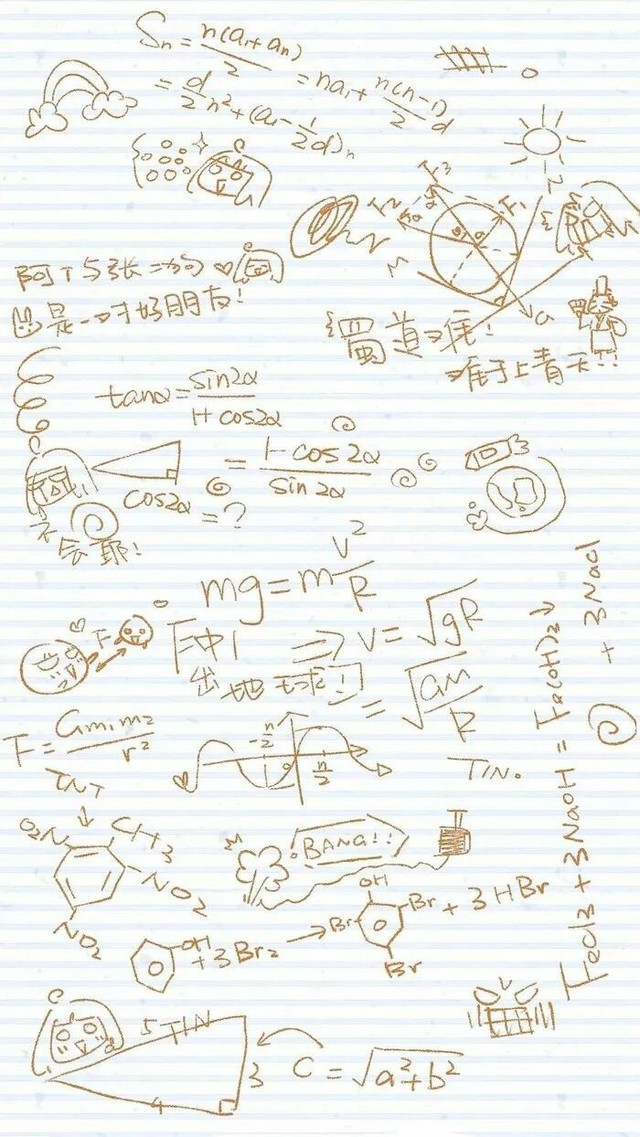 Sn = n(a₁+an)/2 = na₁ + n(n-1)/2 d
= d/2 n² + (a₁ - 1/2 d)n
F₃
F₂
F₁
N
M
G
阿丁与张二狗
是一对好朋友!
蜀道难!
难于上青天!!
tanα = sin2α/1+cos2α
= 1-cos2α/sin2α
cos2α = ?
不会耶!
mg = m v²/R
F
冲
出地球!
⇒ v = √gR
= √GM/R
F = Gm₁m₂/r²
-π/2
0
π/2
TIN.
TNT
↓
O₂N
CH₃
NO₂
NO₂
BANG!!
OH + 3Br₂ → OH Br Br Br + 3HBr
FeCl3 + 3NaOH = Fe(OH)₃↓ + 3NaCl
5
TIN
3
4
C = √a²+b²